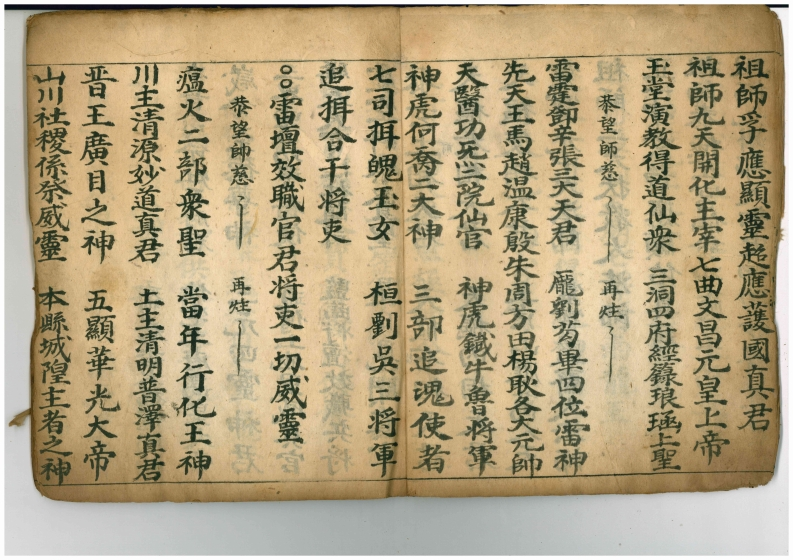 祖師孚應顯靈超應護國真君
祖師九天開化主宰七曲文昌元皇上帝
玉堂演教得道仙衆 三洞四府經籙琅函上聖
恭望師慈 再炷
雷霆鄧辛張三大天君 龐劉茍畢四位雷神
先天王馬趙温康殷朱周方田楊耿各大元帥
天醫功兊二院仙官 神虎鐵牛魯將軍
神虎何喬二大神 三部追䰟使者
七司𢬵魄玉女 桓劉吳三將軍
追𢬵合干将吏
雷壇效職官君将吏一切威靈
恭望師慈 再炷
瘟火二部衆聖 當年行化王神
川主清源妙道真君 土主清明普澤真君
晋王廣目之神 五顯華光大帝
山川社稷係祭威靈 本縣城隍主者之神